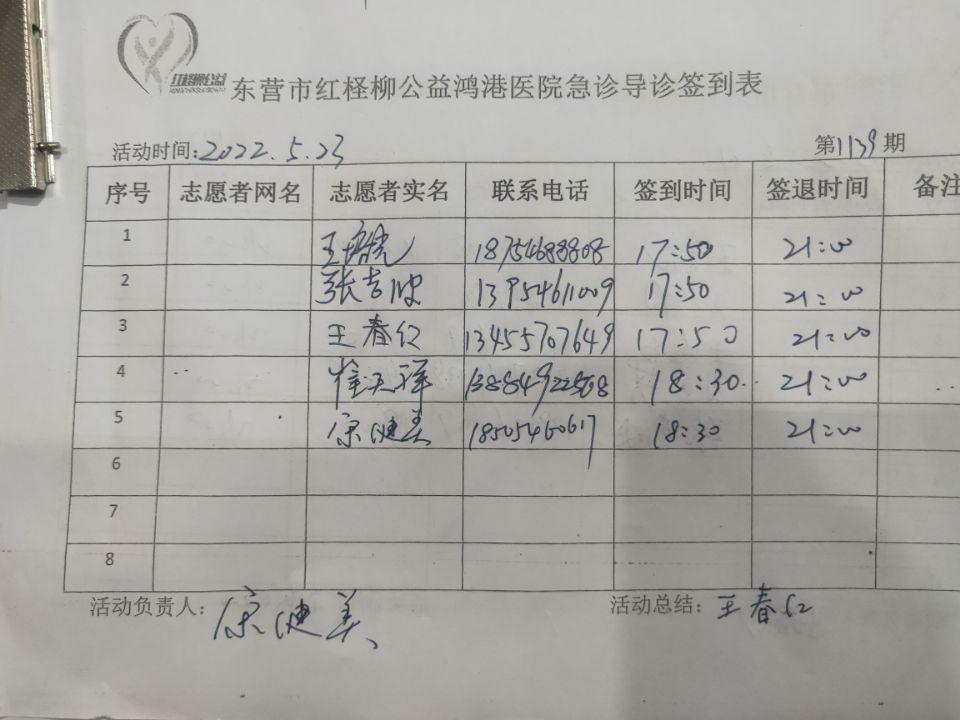 红柽柳公益
东营市红柽柳公益鸿港医院急诊导诊签到表
活动时间:2022.5.23 第1139期
序号 志愿者网名 志愿者实名 联系电话 签到时间 签退时间 备注
1 王 18754683808 17:50 21:00
2 张吉 13954611009 17:50 21:00
3 王春红 13455707649 17:50 21:00
4 天祥 18:30 21:00
5 康健美 18505460617 18:30 21:00
6
7
8
活动负责人: 康健美 活动总结: 王春红